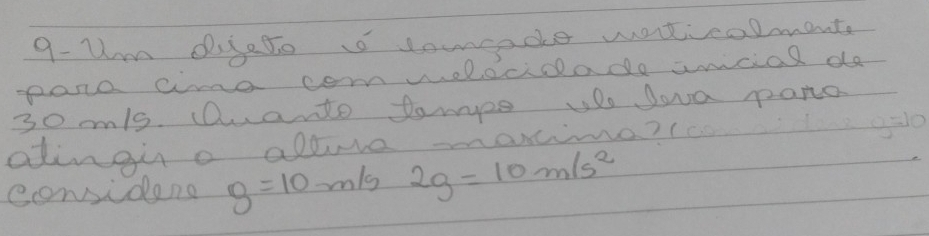 9-Um objeto é lançado verticalmente
para cima com velocidade inicial de
30 m/s. Quanto tempo ele leva para
atingir a altura maxima? ( g=10
considere g=10 m/s 2g=10 m/s²